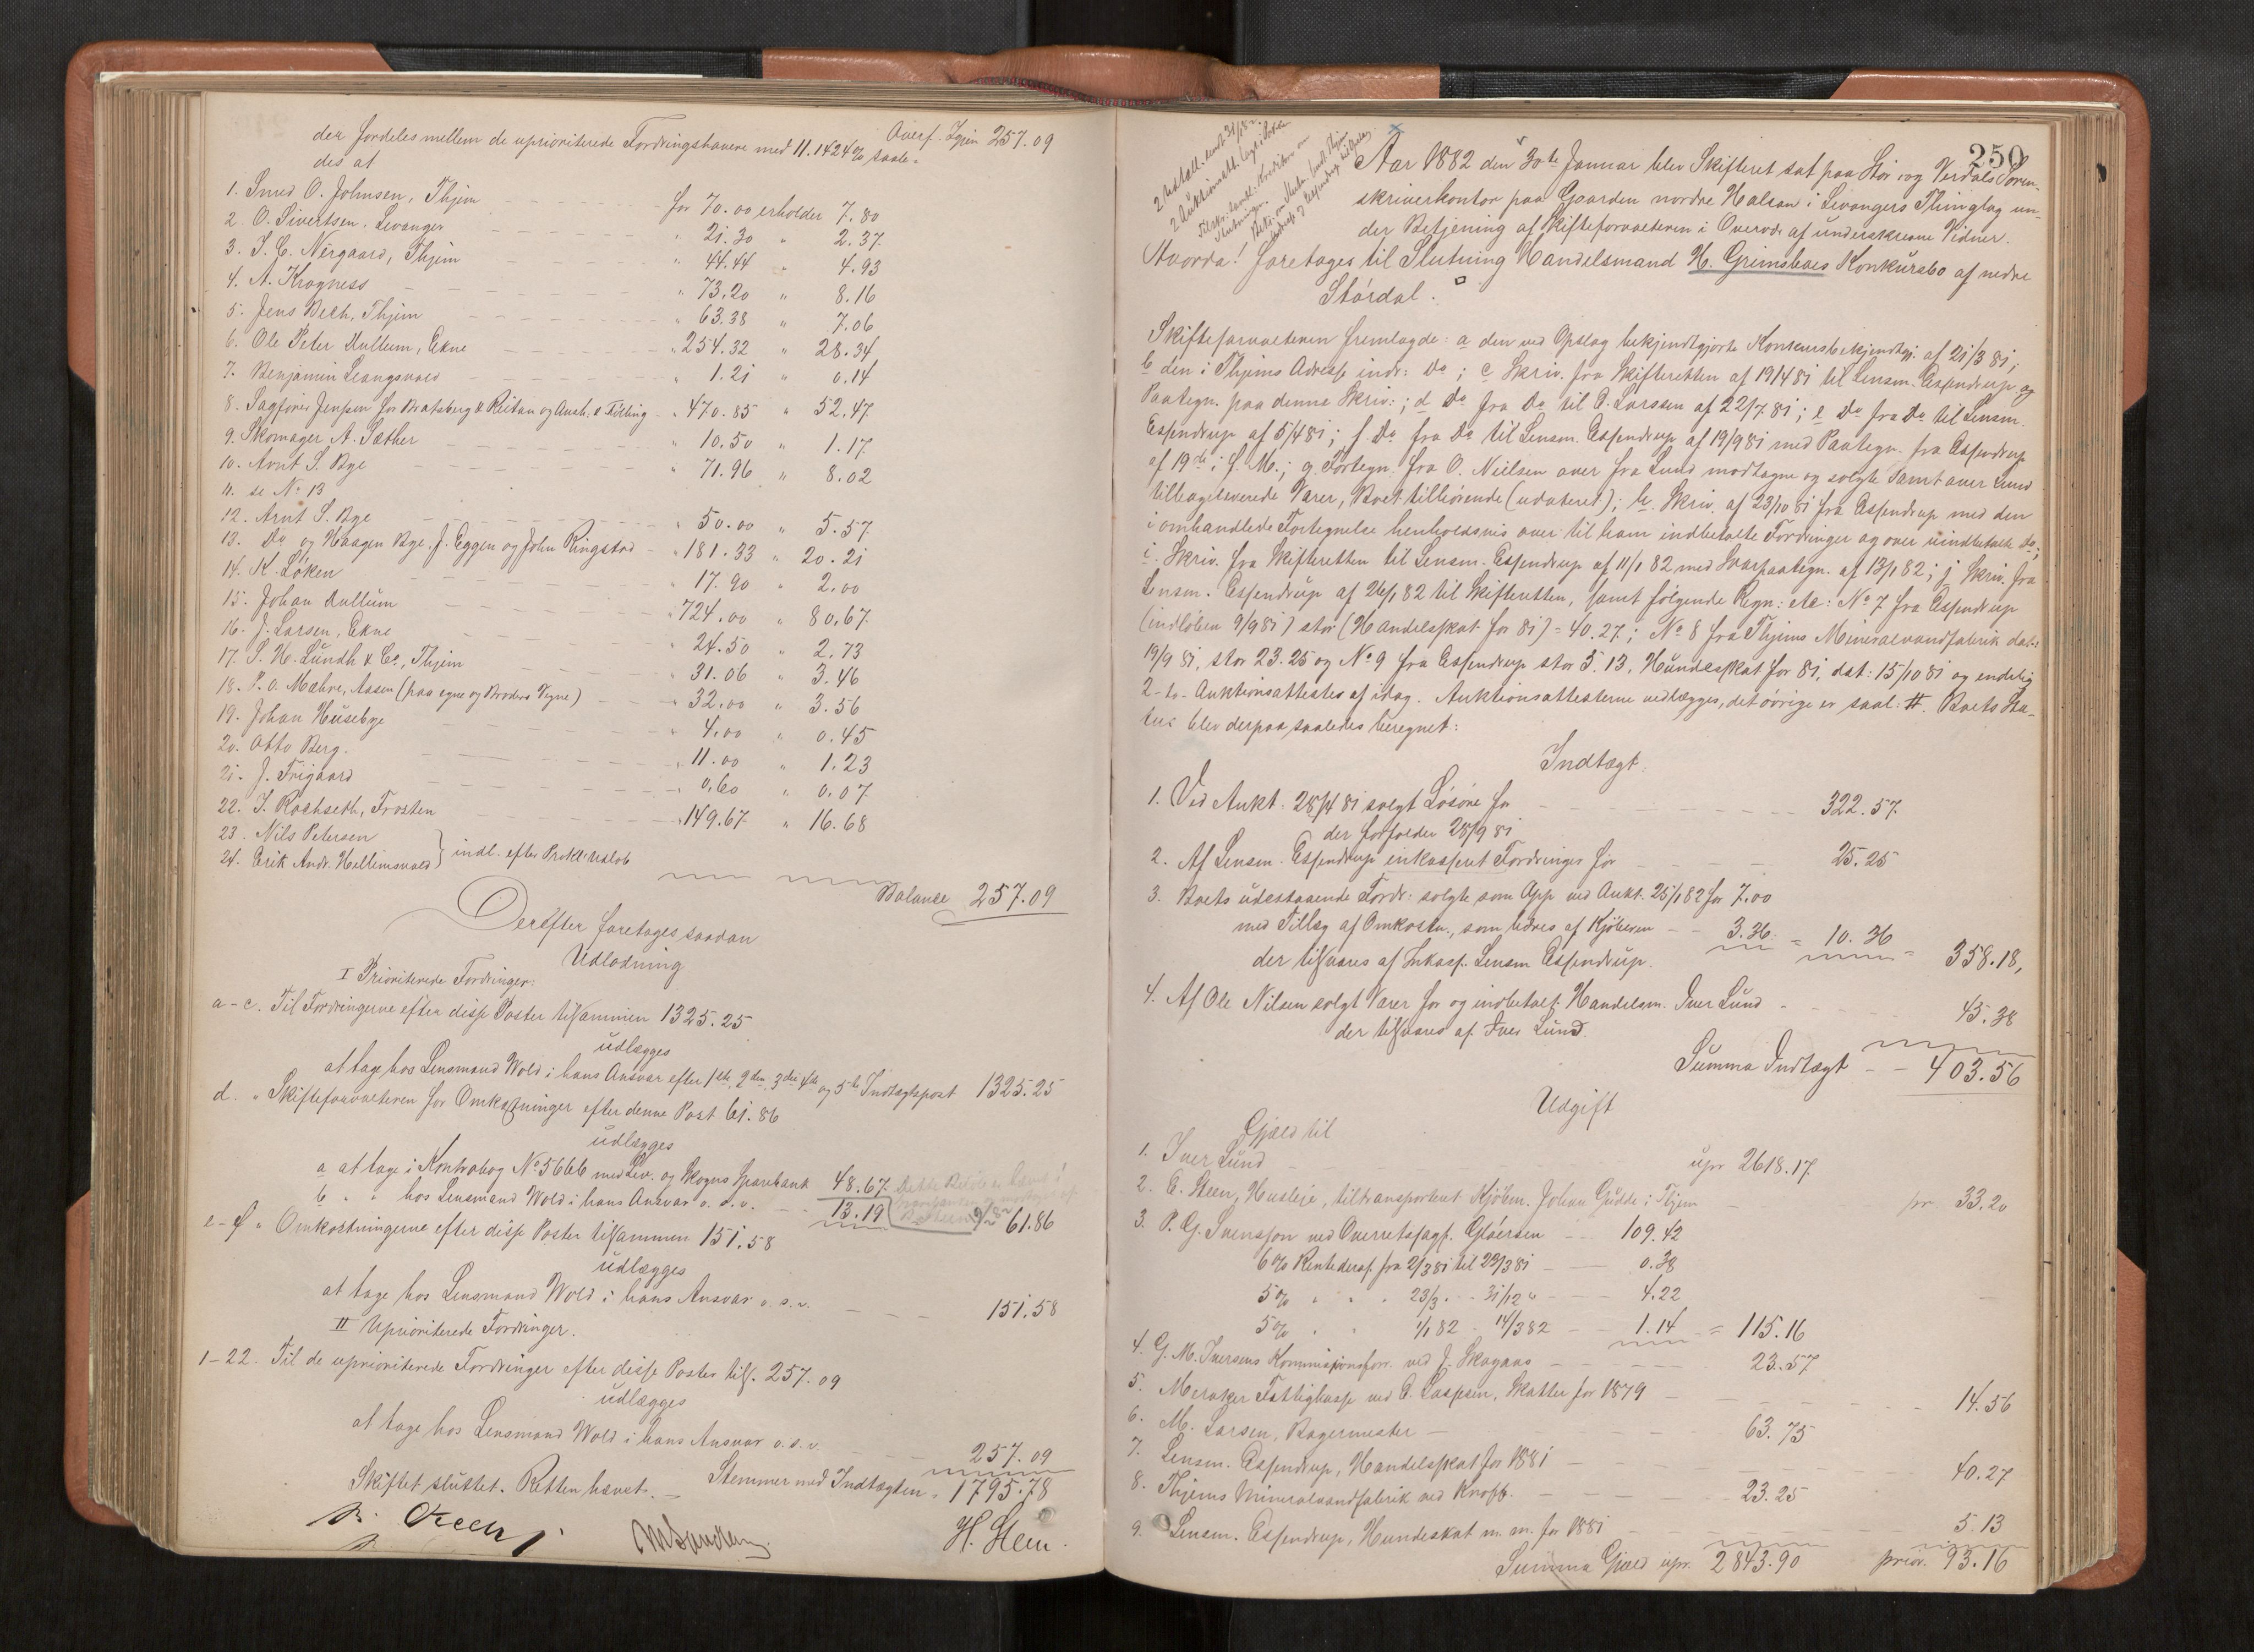 Overf. Thjem 257.09
der fordeles mellem de uprioriterede Fordringshavere med 11.1424% saale-
des at
1. Smed O. Johnsen, Thjem for 70.00 erholder 7.80
2. O. Sivertsen, Levanger " 21.30 " 2.37
3. I. C. Nergaard, Thjem " 44.44 " 4.93
4. A. Krogness " 73.20 " 8.16
5. Jens Bech, Thjem " 63.38 " 7.06
6. Ole Peter Kullum, Ekne " 254.32 " 28.34
7. Benjamin Leangsvold " 1.21 " 0.14
8. Sagfører Jenssen for Bratsberg & Reitan og Aush. & Følling " 470.85 " 52.47
9. Skomager A. Sæther " 10.50 " 1.17
10. Arnt S. Bye " 71.96 " 8.02
11. se No 13
12. Arnt S. Bye " 50.00 " 5.57
13. Do og Haagen Bye, J. Eggen og John Ringstad " 181.33 " 20.21
14. K. Løken " 17.90 " 2.00
15. Johan Kullum " 724.00 " 80.67
16. J. Larsen, Ekne " 24.50 " 2.73
17. S. H. Lundh & Co, Thjem " 31.06 " 3.46
18. P. O. Mæhre, Aasen (paa egne og Broders Vegne) " 32.00 " 3.56
19. Johan Husebye " 4.00 " 0.45
20. Otto Berg. " 11.00 " 1.23
21. J. Frigaard " 0.60 " 0.07
22. I. Rochseth, Frosten " 149.67 " 16.68
23. Nils Petersen
24. Erik Andr. Hellemsvold } indl. efter Prokl. Udløb
Balance 257.09
Derefter foretages saadan
Udlodning
I Prioriterede Fordringer:
a-c. Til Fordringerne efter disse Poster tilsammen 1325.25
udlægges
at tage hos Lensmand Wold i hans Ansvar efter 1ste, 2den, 3die, 4de og 5te Indtægtspost 1325.25
d. " Skifteforvalteren for Omkostninger efter denne Post 61.86
udlægges
a at tage i Kontrabog No 5666 med Lev. og Skogns Sparebank 48.67
b " " hos Lensmand Wold i hans Ansvar o. s. v. 13.19 61.86
e-f " Omkostningerne efter disse Poster tilsammen 151.58
udlægges
at tage hos Lensmand Wold i hans Ansvar o. s. v. 151.58
II Uprioriterede Fordringer.
1-22. Til de uprioriterede Fordringer efter disse Poster tils. 257.09
udlægges
at tage hos Lensmand Wold i hans Ansvar o. s. v. 257.09
Stemmer med Indtægten = 1795.78
Skiftet sluttet. Retten hævet.
H. Stem.
250
Aar 1882 den 30te Januar blev Skifteret sat paa Stør- og Verdals Soren-
skriverkontor paa Gaarden nordre Halsan i Levangers Thinglag un-
der Betjening af Skifteforvalteren i Overvær af underskrevne Vidner.
Hvorda! foretages til Slutning Handelsmand H. Grimsboes Konkursbo af nedre
Størdal.
Skifteforvalteren fremlagde: a den ved Opslag bekjendtgjorte Konkursbekjendtgj. af 21/3 81;
b den i Thjems Adresse indr. Do; c Skriv. fra Skifteretten af 19/4 81 til Lensm. Espendrup og
Paategn. paa denne Skriv.; d Do fra Do til E. Larssen af 22/7 81; e Do fra Do til Lensm.
Espendrup af 5/4 81; f. Do fra Do til Lensm. Espendrup af 19/9 81 med Paategn. fra Espendrup
af 19de i f. M.; g Fortegn. fra O. Nielsen over fra Lund modtagne og solgte samt over Lund
tilbageleverede Varer, Boet tilhørende (udateret); h. Skriv. af 23/10 81 fra Espendrup med den
i omhandlede Fortegnelse henholdsvis over til ham indbetalte Fordringer og over uindbetalte Do;
i. Skriv. fra Skifteretten til Lensm. Espendrup af 11/1 82 med Svarpaategn. af 13/1 82; j Skriv. fra
Lensm. Espendrup af 26/1 82 til Skifteretten, samt følgende Regn. etc: No 7 fra Espendrup
(indløben 9/9 81) stor (Handelsskat for 81) = 40.27; No 8 fra Thjems Mineralvandfabrik dat.
19/9 81, stor 23.25 og No 9 fra Espendrup stor 5.13, Hundeskat for 81, dat: 15/10 81 og endelig
2-to-Auktionsattester af idag. Auktionsattesterne vedlægges, det øvrige er saal: #. Boets Sta-
tus blev derpaa saaledes beregnet:
Indtægt:
1. Ved Aukt. 28/4 81 solgt Løsøre for 322.57
der forfalder 28/9 81
2. Af Lensm. Espendrup inkasseret Fordringer for 25.25
3. Boets udestaaende Fordr. solgte som App ved Aukt. 25/1 82 for 7.00
med Tillæg af Omkostn., som udres af Kjøberen 3.36 = 10.36 = 358.18,
der tilsvares af Inkass. Lensm Espendrup.
4. Af Ole Nilsen solgt Varer for og indbetalt Handelsm. Iver Lund 45.38
der tilsvares af Iver Lund.
Summa Indtægt 403.56
Udgift
Gjæld til
1. Iver Lund upr 2618.17
2. E. Steen, Husleje, tiltransporteret Kjøbm. Johan Gudde i Thjem pr. 33.20
3. P. G. Svensson ved Overretssagf. Gløersen 109.42
6% Rente deraf fra 2/3 81 til 23/3 81 0.38
5% " " 23/3 " 31/12 " 4.22
5% " " 1/1 82 " 14/3 82 1.14 = 115.16
4. G. M. Iversens Kommissionsforr. ved J. Skogaas 23.57
5. Meraker Fattigkasse ved E. Caspsen, Skatter for 1879 14.56
6. M. Larsen, Bagermester 63.75
7. Lensm. Espendrup, Handelsskat for 1881 40.27
8. Thjems Mineralvandfabrik ved Knoff. 23.25
9. Lensm. Espendrup, Hundeskat m. m. for 1881 5.13
Summa Gjæld upr. 2843.90 prior. 93.16